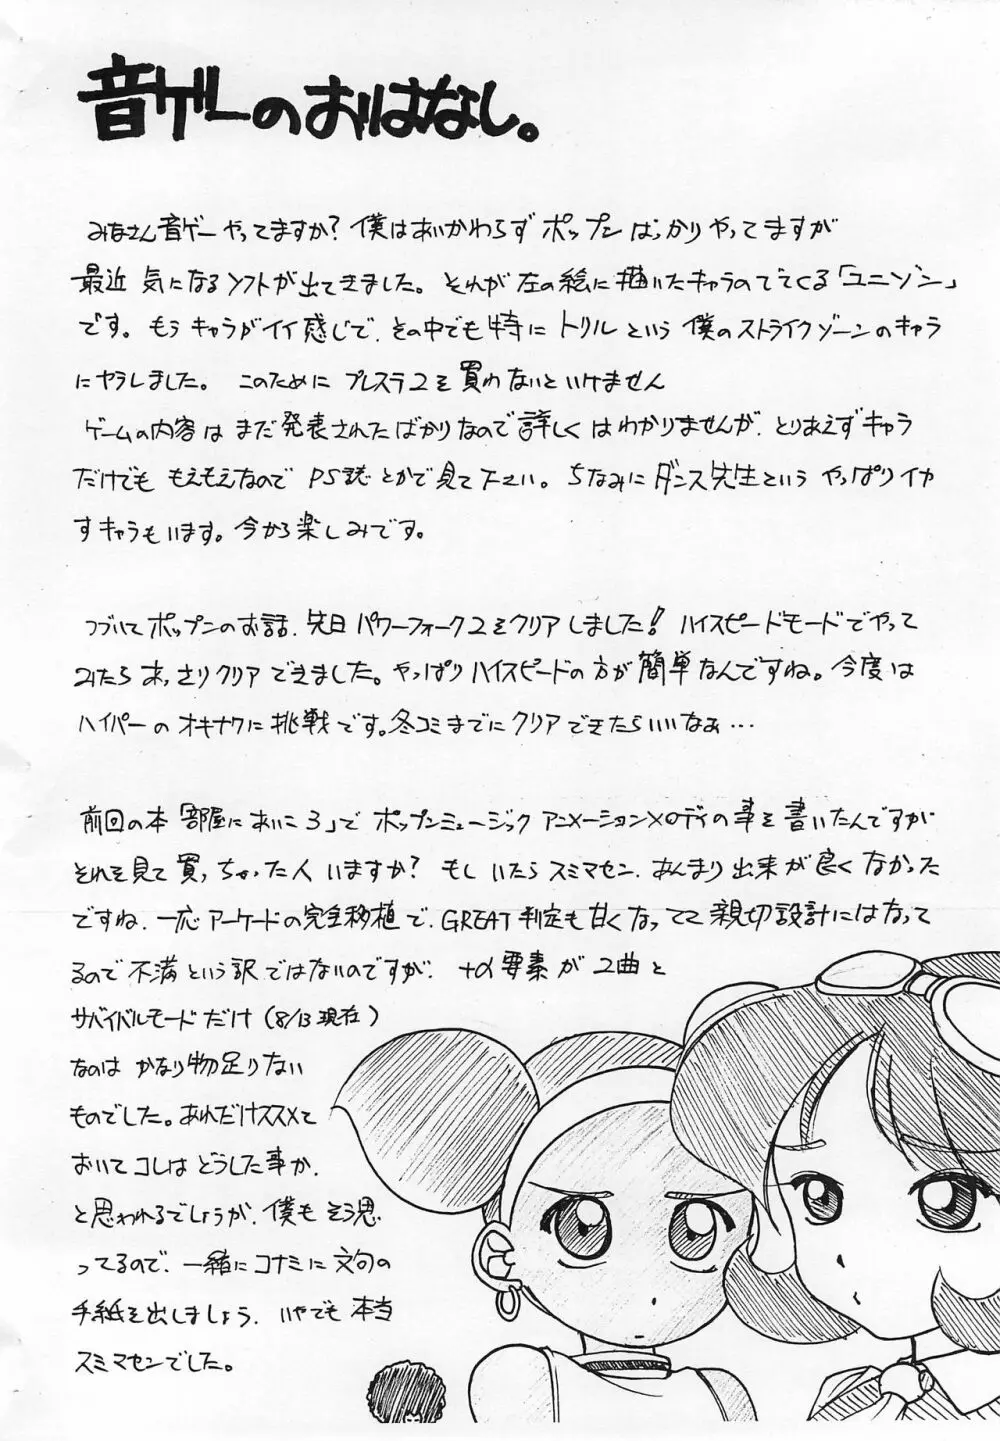 音ゲーのおはなし。
みなさん音ゲーやってますか?僕はあいかわらずポップンばっかりやってますが
最近気になるソフトが出てきました。それが左の絵に描いたキャラのでてくる「ユニゾン」
です。もうキャラがイイ感じで、その中でも特にトリルという僕のストライクゾーンのキャラ
にヤラレました。このためにプレステ2を買わないといけません
ゲームの内容はまだ発表されたばかりなので詳しくはわかりませんが、とりあえずキャラ
だけでももえもえなのでPS誌とかで見て下さい。ちなみにダンス先生というやっぱりイカ
すキャラもいます。今から楽しみです。
つづいてポップンのお話、先日パワーフォーク2をクリアしました!ハイスピードモードでやって
みたらあっさりクリアできました。やっぱりハイスピードの方が簡単なんですね。今度は
ハイパーのオキナワに挑戦です。冬コミまでにクリアできたらいいなぁ…
前回の本「部屋においこ3」でポップンミュージックアニメーションメロディの事を書いたんですが
それを見て買っちゃった人いますか?もしいたらスミマセン、あんまり出来が良くなかった
ですね、一応アーケードの完全移植で、GREAT判定も甘くなってて親切設計にはなって
るので不満という訳ではないのですが、+α要素が2曲と
サバイバルモードだけ(8/13現在)
なのはかなり物足りない
ものでした。あれだけススメて
おいてコレはどうした事か、
と思われるでしょうが、僕もそう思
ってるので、一緒にコナミに文句の
手紙を出しましょう、いやでも本当
スミマセンでした。